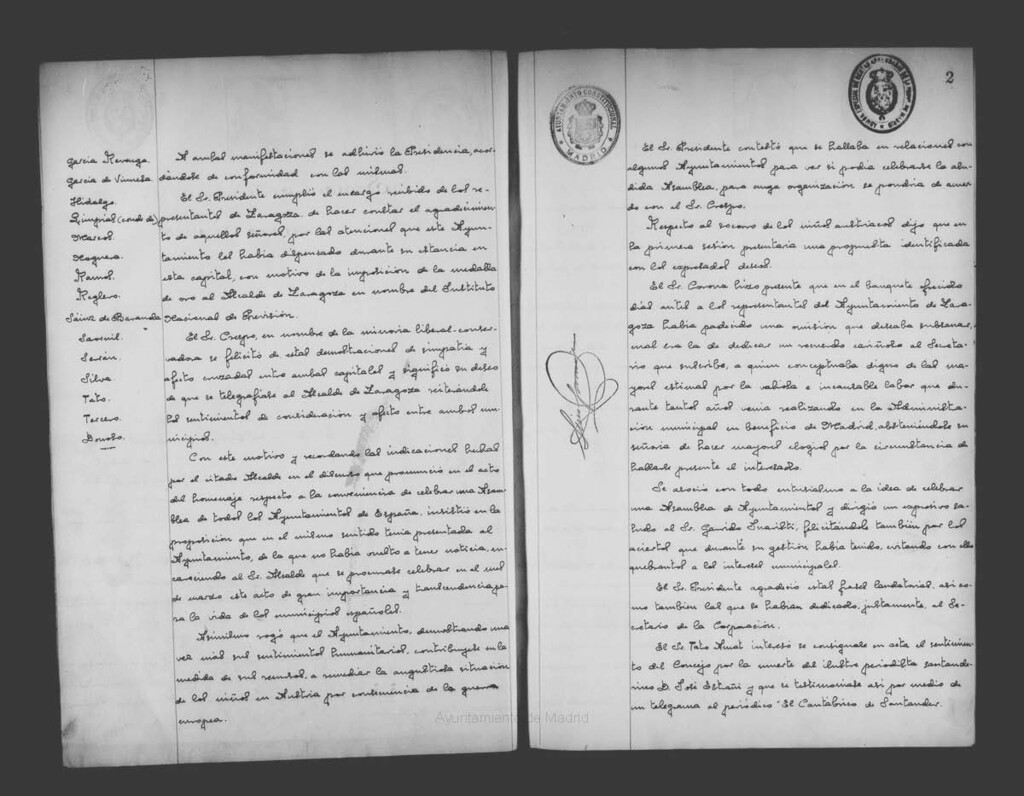 García Revenga.
García de Vinuesa
Hidalgo.
Limpias (conde de)
Marcos.
Noguera.
Ramos.
Reglero.
Sáinz de Baranda
Saornil.
Serrán.
Silva.
Tato.
Tercero.
Donoso.
A ambas manifestaciones se adhirió la Presidencia, acor-
dándose de conformidad con las mismas.
El Sr. Presidente cumplió el encargo recibido de los re-
presentantes de Zaragoza, de hacer constar el agradecimien-
to de aquellos señores, por las atenciones que este Ayun-
tamiento les había dispensado durante su estancia en
esta capital, con motivo de la imposición de la medalla
de oro al Alcalde de Zaragoza en nombre del Instituto
Nacional de Previsión.
El Sr. Crespo, en nombre de la minoría liberal-conser-
vadora se felicitó de estas demostraciones de simpatía y
afecto cruzadas entre ambas capitales y significó su deseo
de que se telegrafiase al Alcalde de Zaragoza reiterándole
los sentimientos de consideración y afecto entre ambos mu-
nicipios.
Con este motivo y recordando las indicaciones hechas
por el citado Alcalde en el discurso que pronunció en el acto
del homenaje respecto a la conveniencia de celebrar una Asam-
blea de todos los Ayuntamientos de España, insistió en la
proposición que en el mismo sentido tenía presentada al
Ayuntamiento, de la que no había vuelto a tener noticia, en-
careciendo al Sr. Alcalde que se procurase celebrar en el mes
de marzo este acto de gran importancia y transcendencia pa-
ra la vida de los municipios españoles.
Asimismo rogó que el Ayuntamiento, demostrando una
vez más sus sentimientos humanitarios, contribuyese en la
medida de sus recursos, a remediar la angustiosa situación
de los niños en Austria por consecuencia de la guerra
europea.
AYUNTAMIENTO CONSTITUCIONAL
MADRID
2
El Sr. Presidente contestó que se hallaba en relaciones con
algunos Ayuntamientos para ver si podía celebrarse la alu-
dida Asamblea, para cuya organización se pondría de acuer-
do con el Sr. Crespo.
Respecto al socorro de los niños austriacos dijo que en
la primera sesión presentaría una propuesta identificada
con los expresados deseos.
El Sr. Corona hizo presente que en el banquete ofrecido
días antes a los representantes del Ayuntamiento de Zara-
goza había padecido una omisión que deseaba subsanar,
cual era la de dedicar un recuerdo cariñoso al Secreta-
rio que suscribe, a quien conceptuaba digno de las ma-
yores estimas por la valiosa e incansable labor que du-
rante tantos años venía realizando en la Administra-
ción municipal en beneficio de Madrid, absteniéndose su
señoría de hacer mayores elogios por la circunstancia de
hallarse presente el interesado.
Se asoció con todo entusiasmo a la idea de celebrar
una Asamblea de Ayuntamientos y dirigió un expresivo sa-
ludo al Sr. Garrido Juaristi, felicitándole también por los
aciertos que durante su gestión había tenido, evitando con ellos
quebrantos a los intereses municipales.
El Sr. Presidente agradeció estas frases laudatorias, así co-
mo también las que se habían dedicado, justamente, al Se-
cretario de la Corporación.
El Sr. Tato Amat interesó se consignase en acta el sentimien-
to del Concejo por la muerte del ilustre periodista santande-
rino D. José Estrañi y que se testimoniase así por medio de
un telegrama al periódico "El Cantábrico de Santander.
Ayuntamiento de Madrid